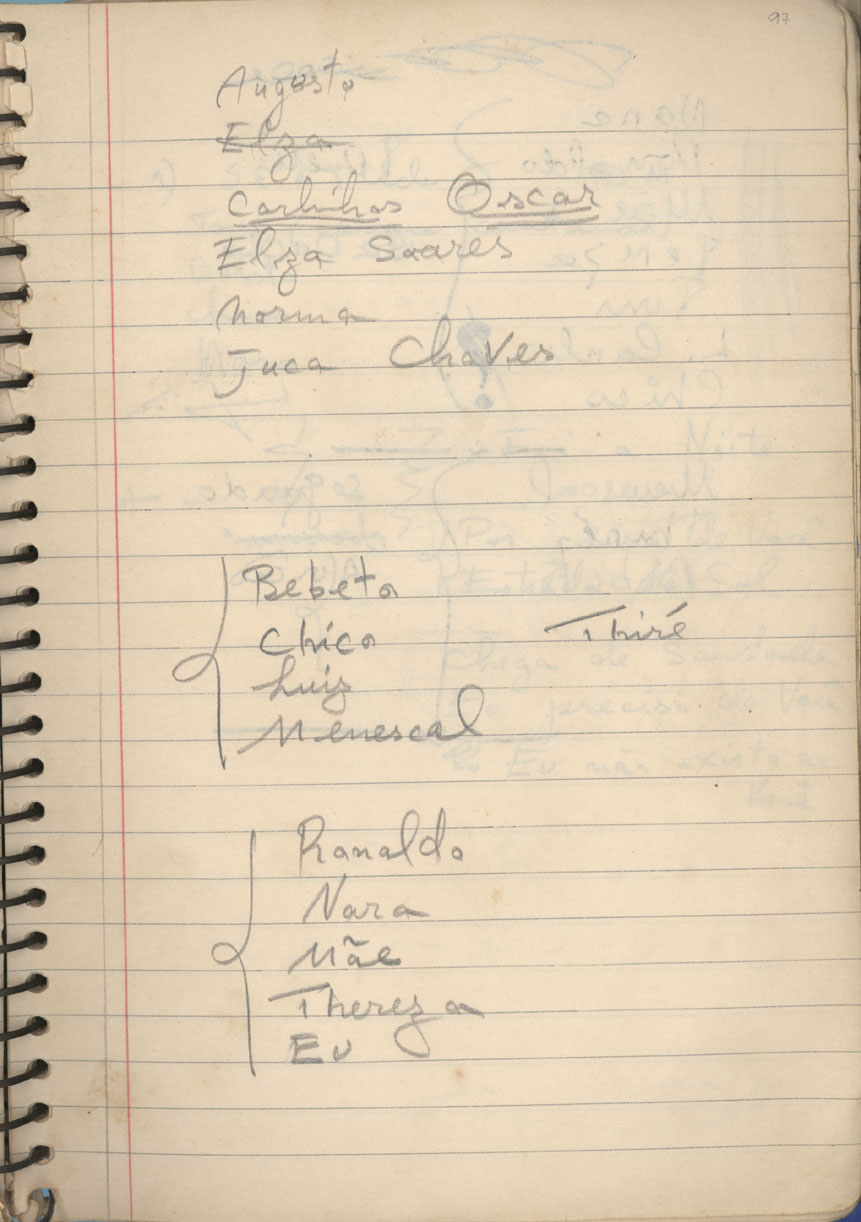 97
Augusto
Elza
Carlinhos Oscar
Elza Soares
Norma
Juca Chaves
Bebeto
Chico Thiré
Luiz
Menescal
Ronaldo
Nara
Mãe
Thereza
Eu